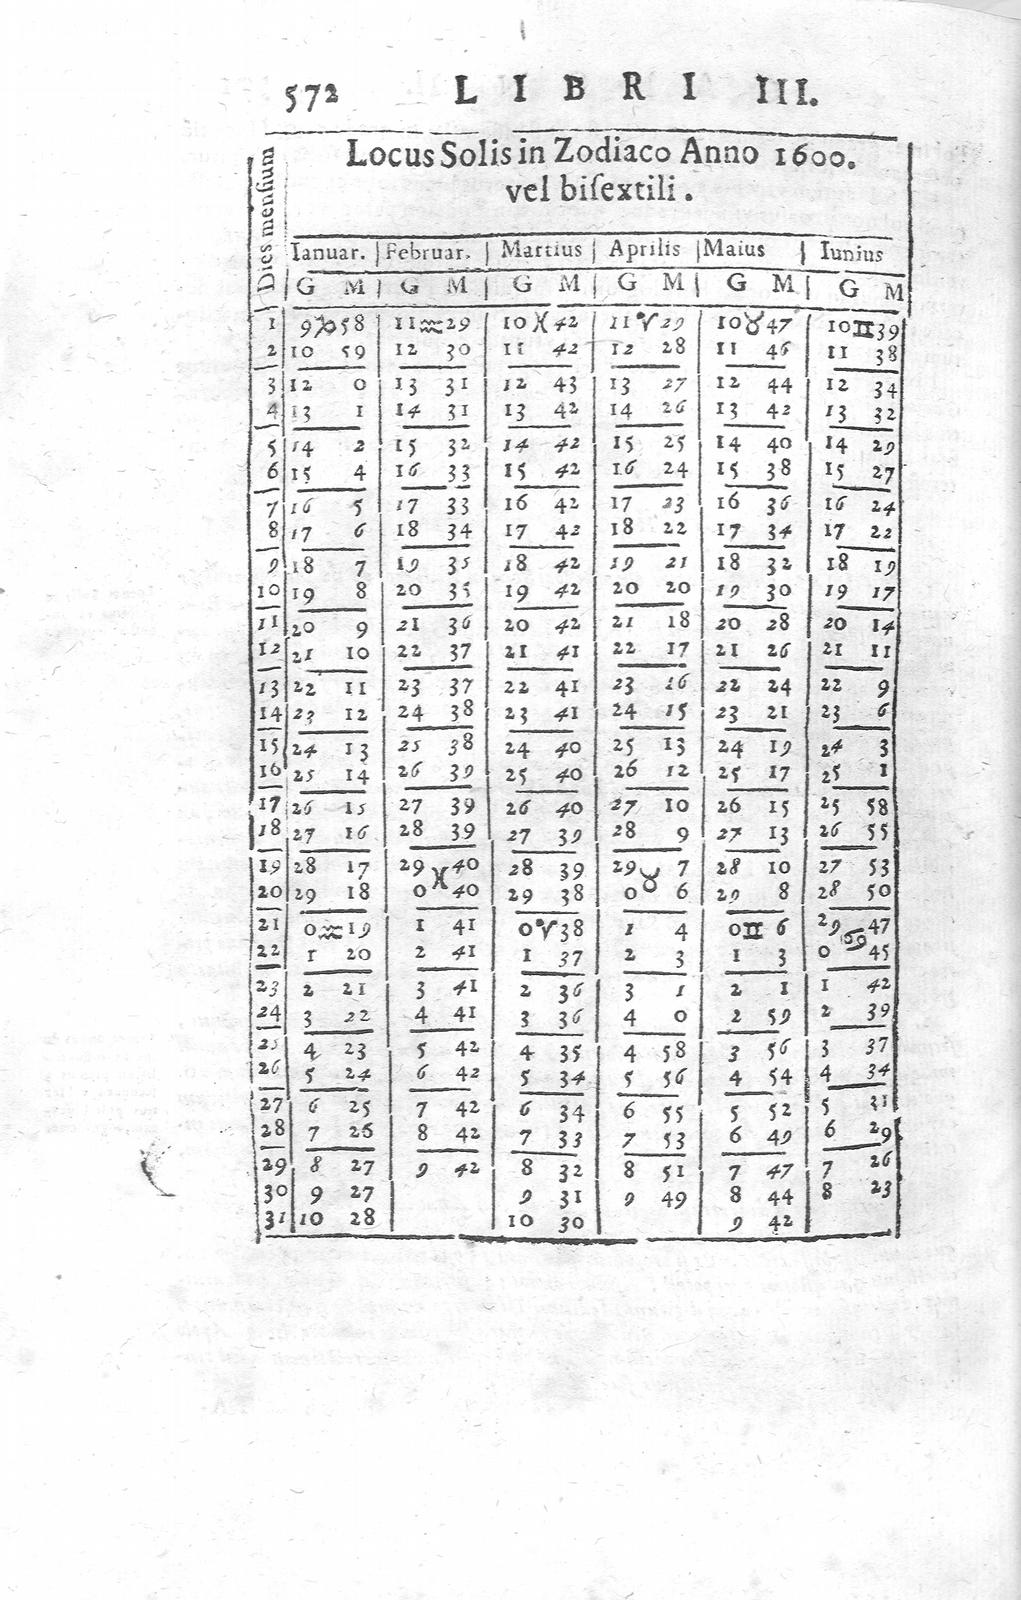 572 LIBRI III.
Dies mensium
Locus Solis in Zodiaco Anno 1600.
vel bisextili.
Ianuar. Februar. Martius Aprilis Maius Iunius
G M G M G M G M G M G M
1 9♑58 11♒29 10♓42 11♈29 10♉47 10♊39
2 10 59 12 30 11 42 12 28 11 46 11 38
3 12 0 13 31 12 43 13 27 12 44 12 34
4 13 1 14 31 13 42 14 26 13 42 13 32
5 14 2 15 32 14 42 15 25 14 40 14 29
6 15 4 16 33 15 42 16 24 15 38 15 27
7 16 5 17 33 16 42 17 23 16 36 16 24
8 17 6 18 34 17 42 18 22 17 34 17 22
9 18 7 19 35 18 42 19 21 18 32 18 19
10 19 8 20 35 19 42 20 20 19 30 19 17
11 20 9 21 36 20 42 21 18 20 28 20 14
12 21 10 22 37 21 41 22 17 21 26 21 11
13 22 11 23 37 22 41 23 16 22 24 22 9
14 23 12 24 38 23 41 24 15 23 21 23 6
15 24 13 25 38 24 40 25 13 24 19 24 3
16 25 14 26 39 25 40 26 12 25 17 25 1
17 26 15 27 39 26 40 27 10 26 15 25 58
18 27 16 28 39 27 39 28 9 27 13 26 55
19 28 17 29 40 28 39 29 7 28 10 27 53
20 29 18 0♓40 29 38 0♉6 29 8 28 50
21 0♒19 1 41 0♈38 1 4 0♊6 29 47
22 1 20 2 41 1 37 2 3 1 3 0♋45
23 2 21 3 41 2 36 3 1 2 1 1 42
24 3 22 4 41 3 36 4 0 2 59 2 39
25 4 23 5 42 4 35 4 58 3 56 3 37
26 5 24 6 42 5 34 5 56 4 54 4 34
27 6 25 7 42 6 34 6 55 5 52 5 31
28 7 26 8 42 7 33 7 53 6 49 6 29
29 8 27 9 42 8 32 8 51 7 47 7 26
30 9 27 9 31 9 49 8 44 8 23
31 10 28 10 30 9 42